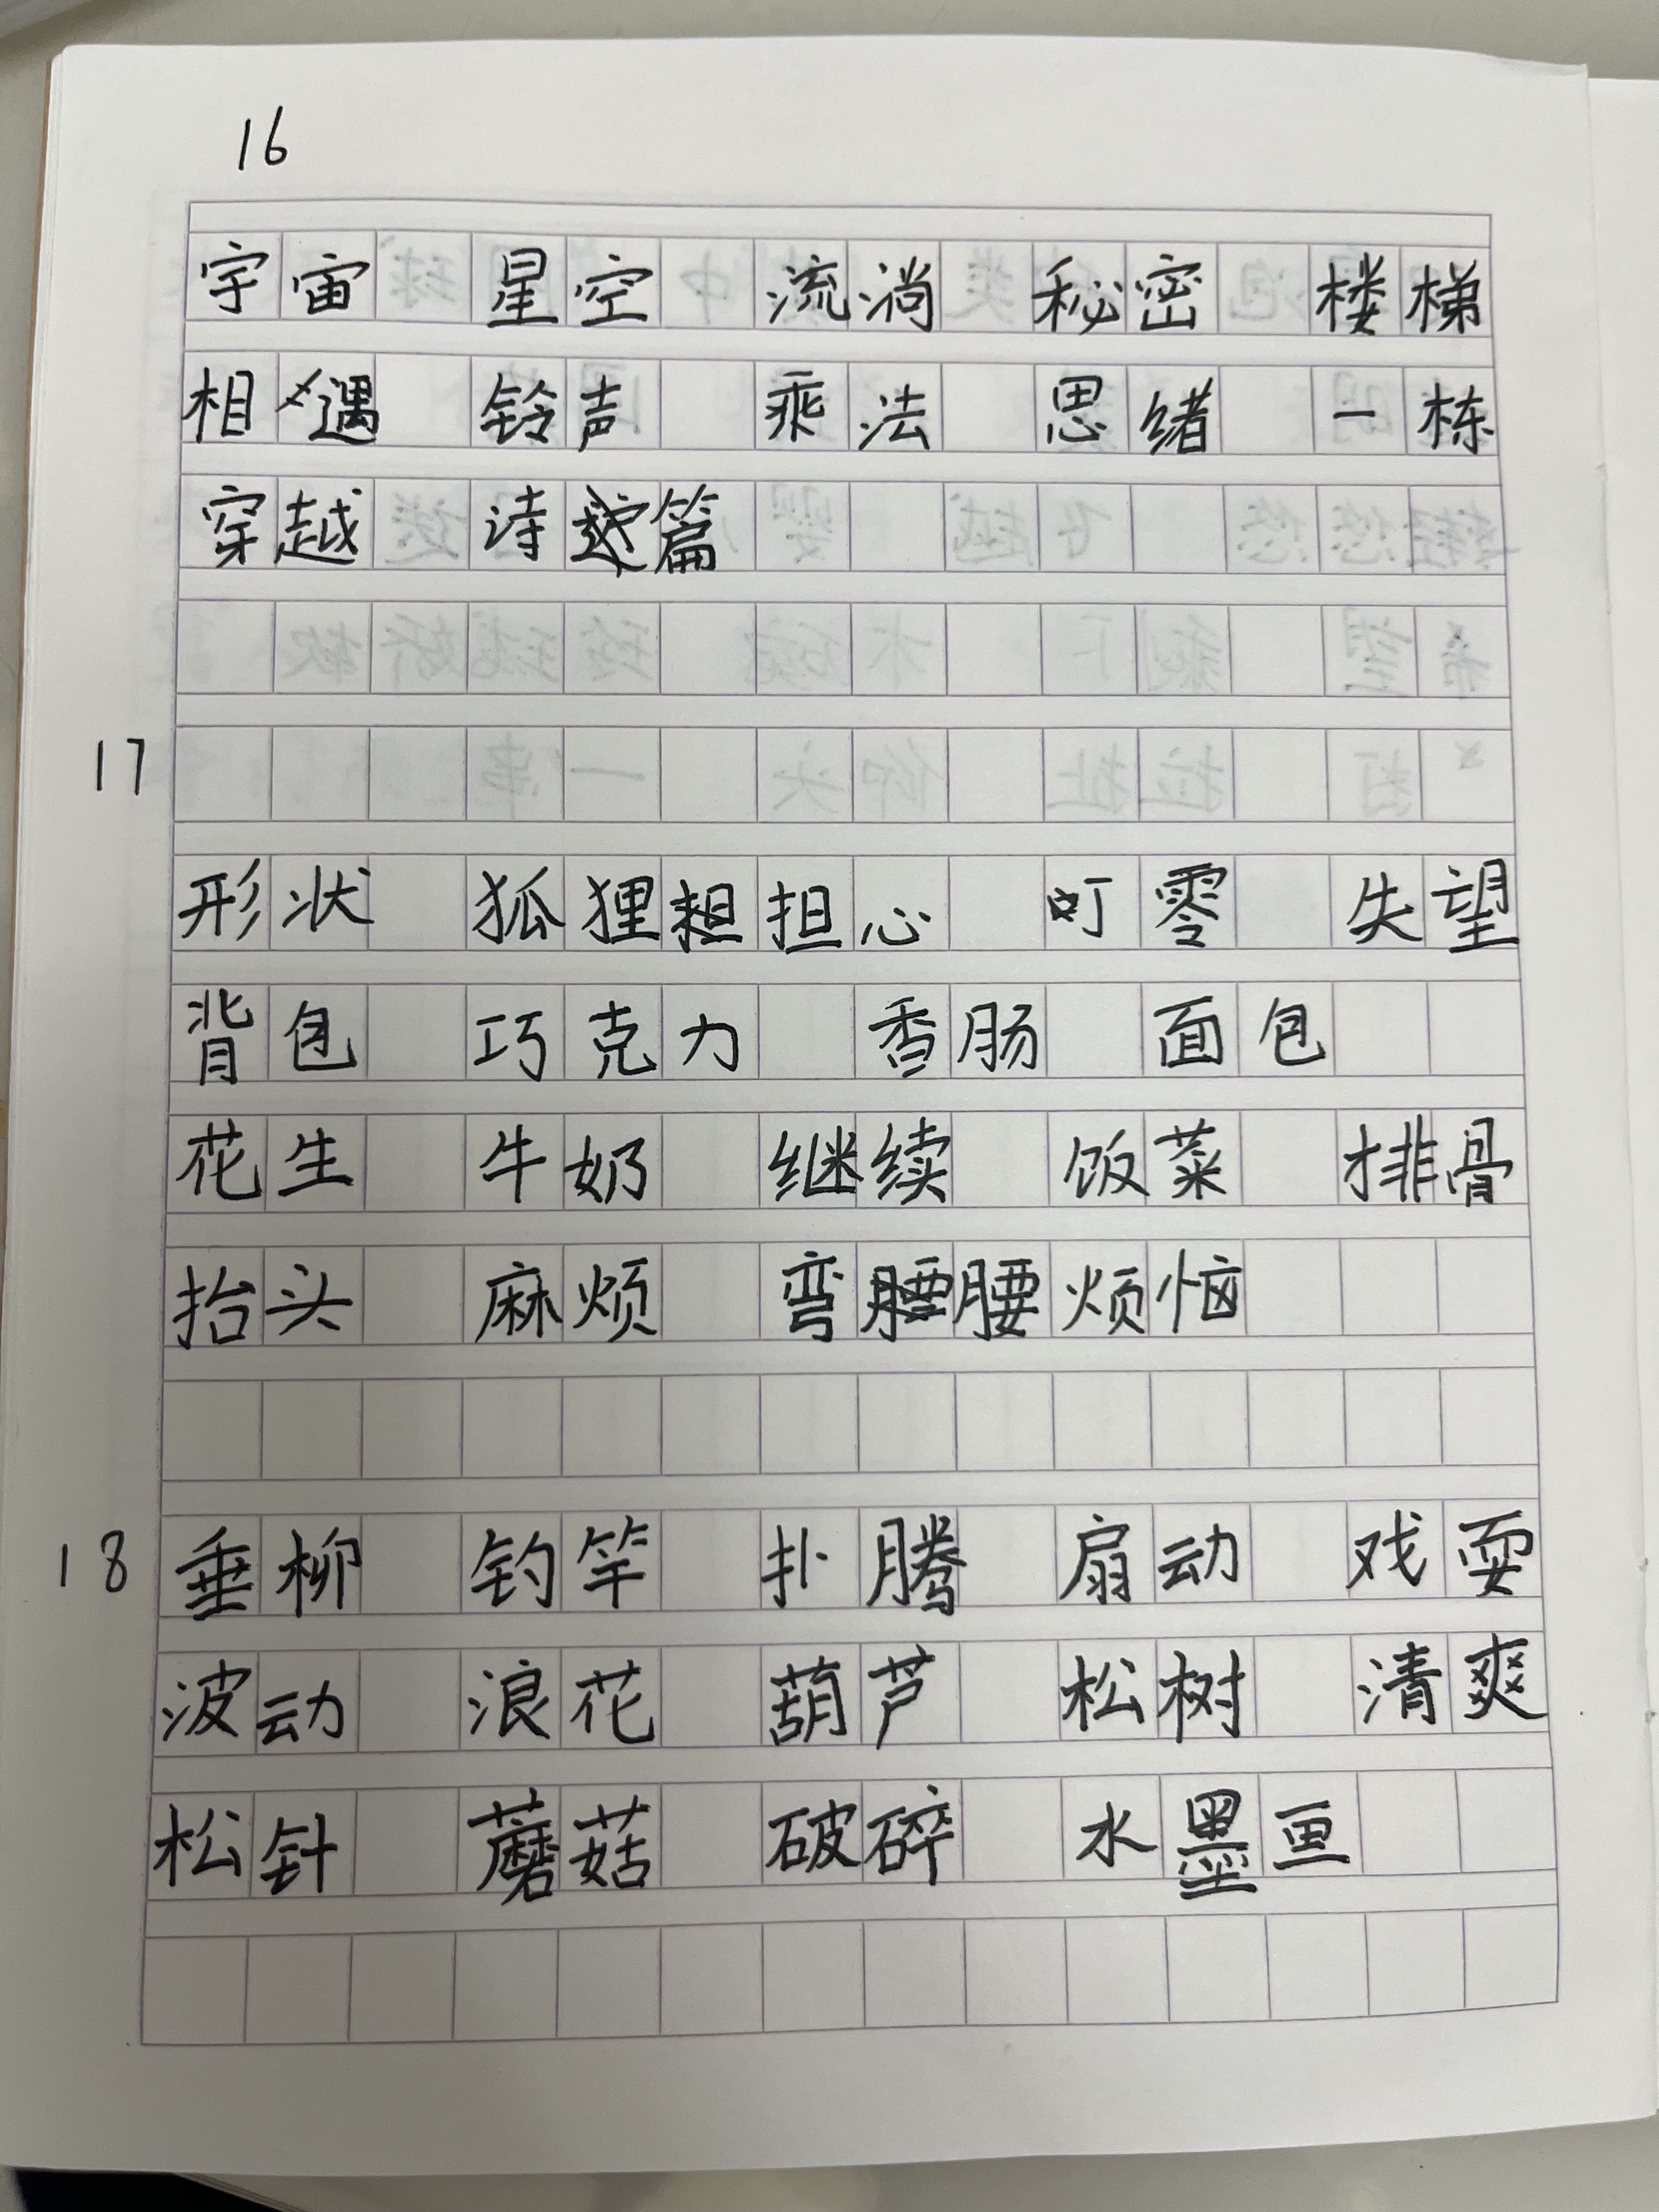 16
宇宙 星空 流淌 秘密 楼梯
相遇 铃声 乘法 思绪 一栋
穿越 诗篇
17
形状 狐狸 担心 叮零 失望
背包 巧克力 香肠 面包
花生 牛奶 继续 饭菜 排骨
抬头 麻烦 弯腰 烦恼
18 垂柳 钓竿 扑腾 扇动 戏耍
波动 浪花 葫芦 松树 清爽
松针 蘑菇 破碎 水墨画